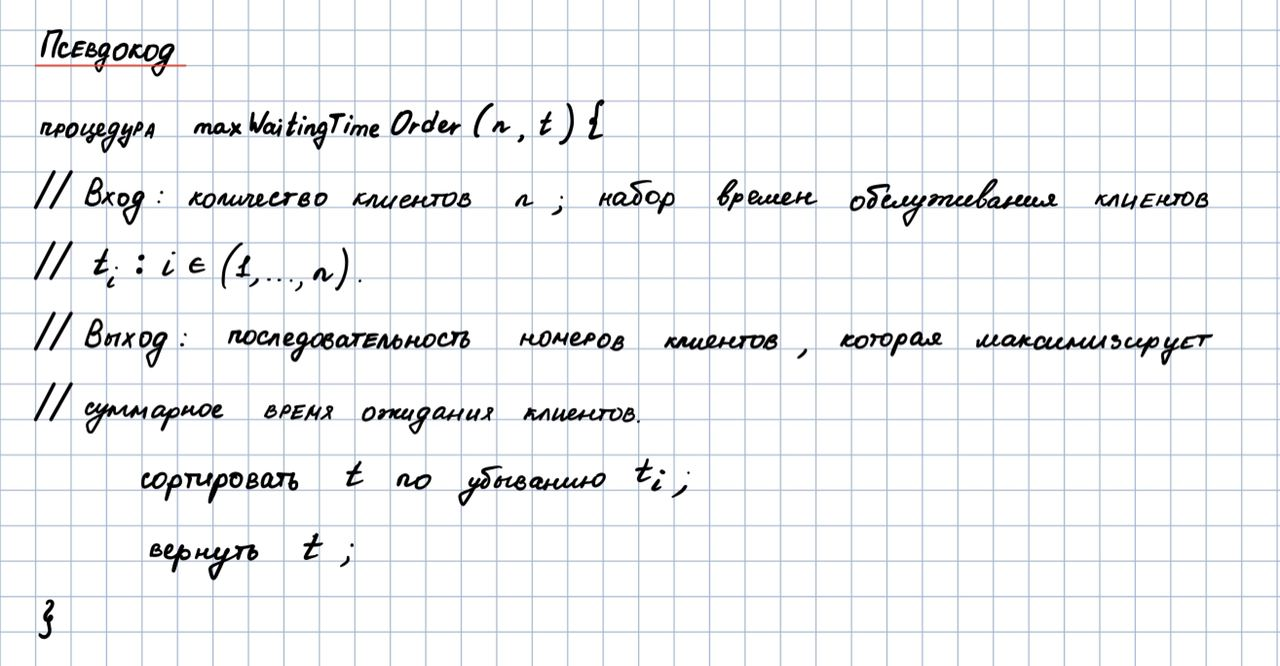 Псевдокод
процедура maxWaitingTimeOrder (n, t) {
// Вход: количество клиентов n ; набор времен обслуживания клиентов
// tᵢ : i ∈ (1,...,n).
// Выход: последовательность номеров клиентов, которая максимизирует
// суммарное время ожидания клиентов.
сортировать t по убыванию tᵢ ;
вернуть t ;
}